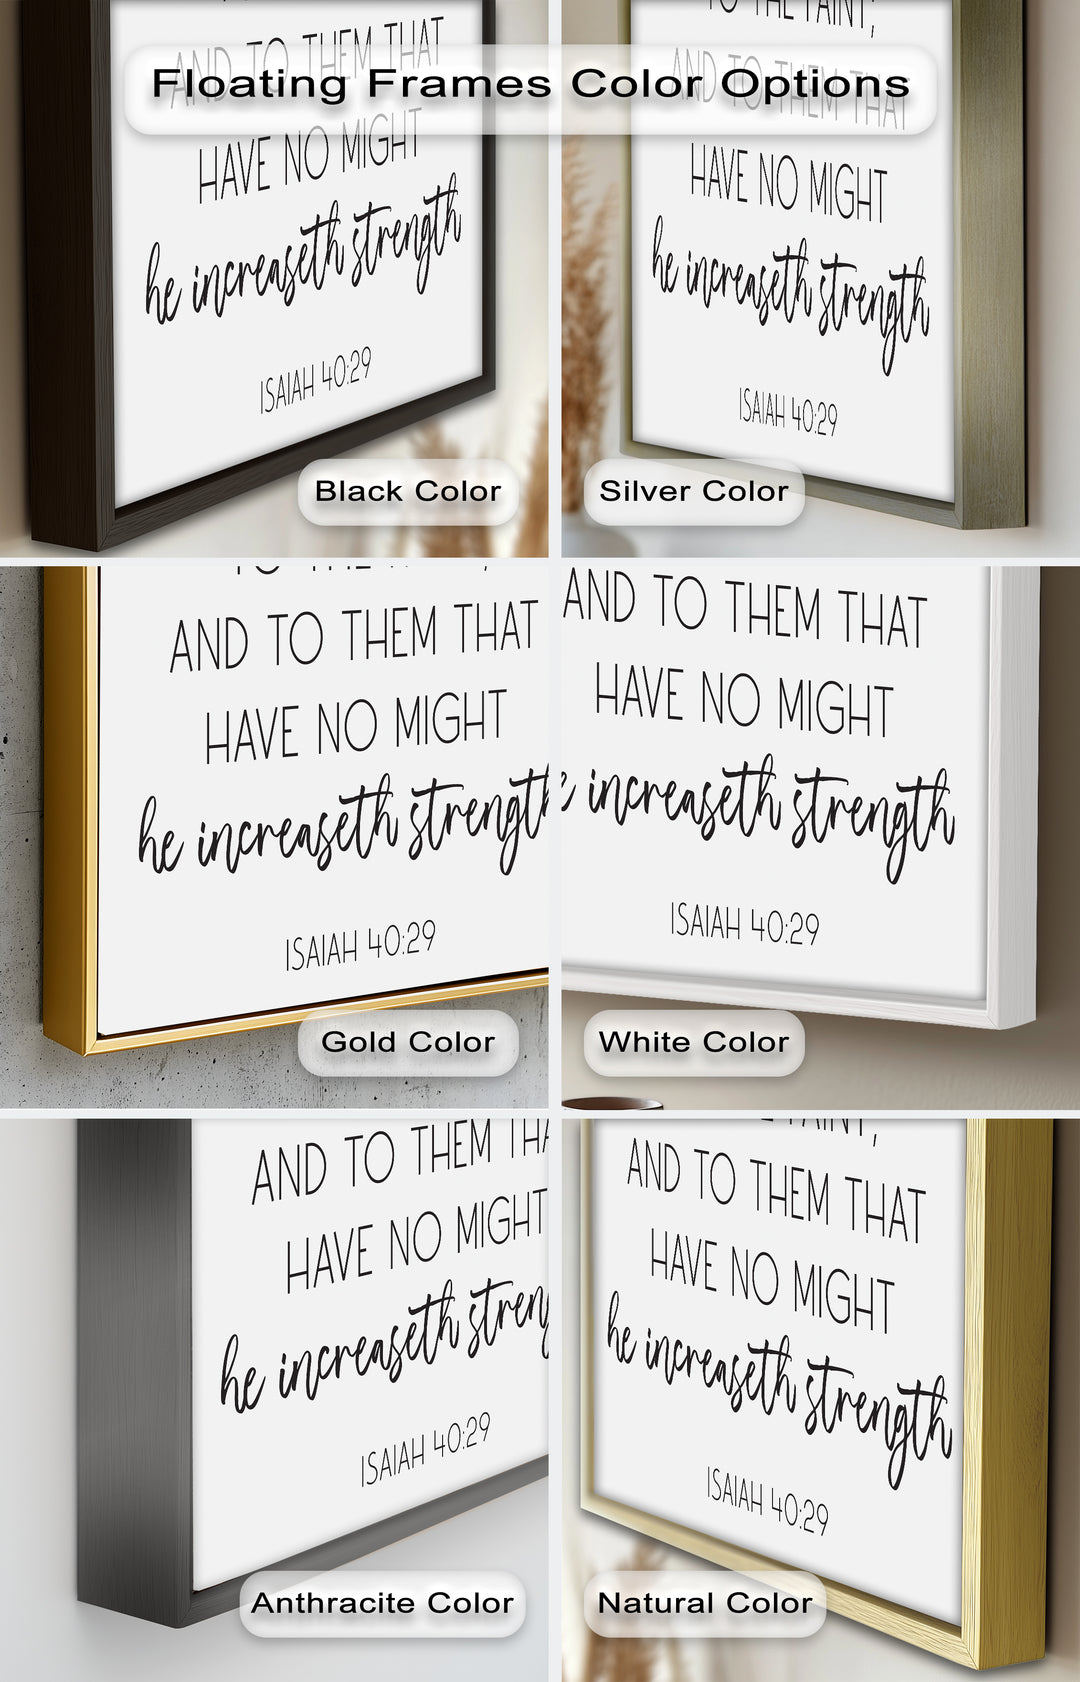 Floating Frames Color Options
AND TO THEM THAT
HAVE NO MIGHT
he increaseth strength
ISAIAH 40:29
Black Color
TO THE FAINT;
AND TO THEM THAT
HAVE NO MIGHT
he increaseth strength
ISAIAH 40:29
Silver Color
AND TO THEM THAT
HAVE NO MIGHT
he increaseth strength
ISAIAH 40:29
Gold Color
AND TO THEM THAT
HAVE NO MIGHT
increaseth strength
ISAIAH 40:29
White Color
AND TO THEM THA
HAVE NO MIGHT
he increaseth streng
ISAIAH 40:29
Anthracite Color
FAINT;
AND TO THEM THAT
HAVE NO MIGHT
he increaseth strength
ISAIAH 40:29
Natural Color